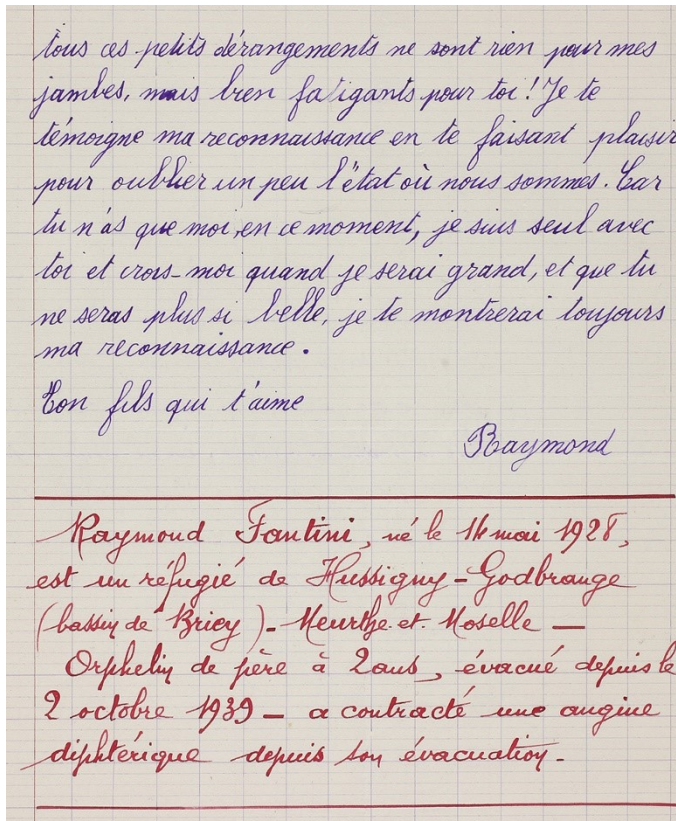 tous ces petits dérangements ne sont rien pour mes
jambes, mais bien fatigants pour toi ! Je te
témoigne ma reconnaissance en te faisant plaisir
pour oublier un peu l'état où nous sommes. Car
tu n'as que moi, en ce moment, je suis seul avec
toi et crois-moi quand je serai grand, et que tu
ne seras plus si belle, je te montrerai toujours
ma reconnaissance.
Ton fils qui t'aime
Raymond
Raymond Fantini, né le 14 mai 1928,
est un réfugié de Hussigny-Godbrange
(bassin de Briey) - Meurthe-et-Moselle —
Orphelin de père à 2 ans, évacué depuis le
2 octobre 1939 — a contracté une angine
diphtérique depuis son évacuation -